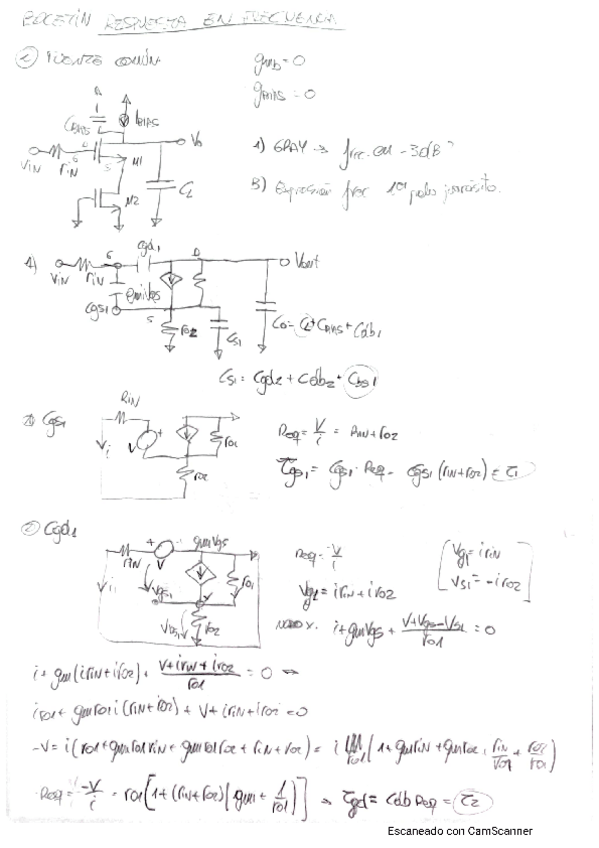 BOLETÍN RESPUESTA EN FRECUENCIA
① FUENTE COMÚN
gmb = 0
gbias = 0
Cbias
IBIAS
Vo
VIN rIN G S M1
M2
CL
A) GRAY → frec. en -3dB
B) Expresión frec 1er polo parásito.
1) VIN rIN G Cgd1 D Vout
gm1Vgs
Cgs1 S ro2 Cs1
Co = CL + Cbias + Cdb1
Cs1 = Cgd2 + Cdb2 + Csb1
① Cgs1
RIN
V ro1
ro2
Req = V/i = RIN + ro2
τgs1 = Cgs1 · Req = Cgs1 (rIN + ro2) = τ1
② Cgd1
rIN V gmVgs
ro1
ro2
Req = -V/i
Vg1 = i rIN
Vs1 = -i ro2
Vgs = i rIN + i ro2
NODO X. i + gmVgs + (V + Vgs - Vs1)/ro1 = 0
i + gm (i rIN + i ro2) + (V + i rIN + i ro2)/ro1 = 0 ⇔
i ro1 + gm ro1 i (rIN + ro2) + V + i rIN + i ro2 = 0
-V = i (ro1 + gm ro1 rIN + gm ro1 ro2 + rIN + ro2) = i ro1 (1 + gm rIN + gm ro2 + rIN/ro1 + ro2/ro1)
Req = -V/i = ro1 [1 + (rIN + ro2) (gm + 1/ro1)] → τgd = Cdb Req = τ2
Escaneado con CamScanner